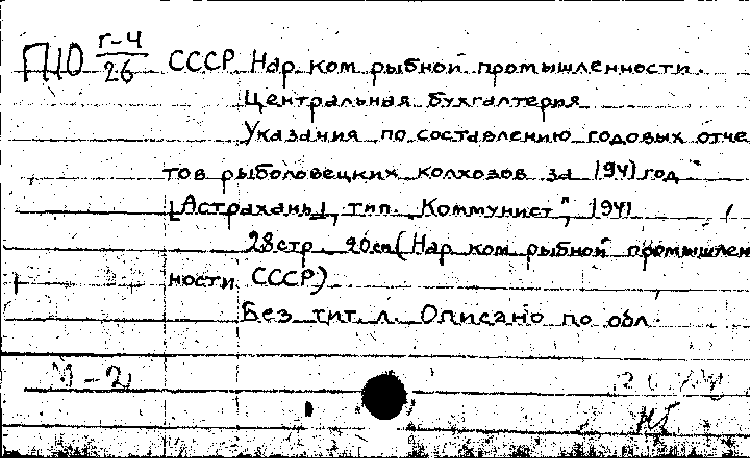 П10 Г-4/26 СССР Нар ком рыбной промышленности.
Центральная бухгалтерия
Указания по составлению годовых отче
тов рыболовецких колхозов за 1941 год "
[Астрахань], тип. "Коммунист", 1941
28 стр. 20 см (Нар ком рыбной промышлен
ности СССР)
Без тит. л. Описано по обл.
М-2